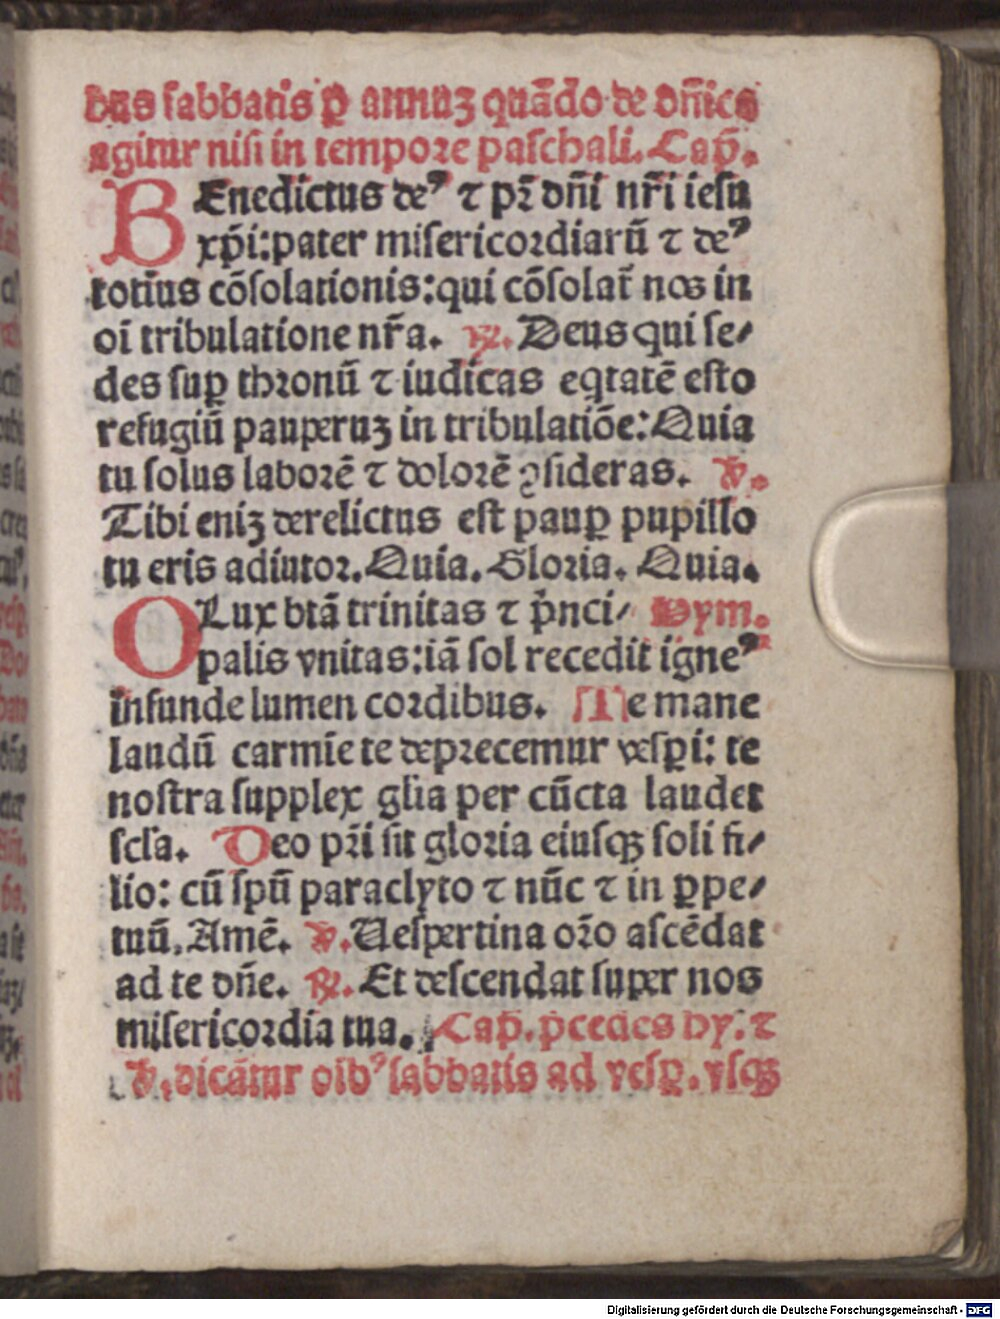 bus sabbatis ꝑ annuꝫ quādo de dn̄ica
agitur nisi in tempore paschali. Cap̄.
BEnedictus deꝰ ⁊ pr̄ dn̄i nr̄i iesu
xp̄i: pater misericordiarū ⁊ deꝰ
totius cōsolationis: qui cōsolat᷑ nos in
oī tribulatione nr̄a. ℟. Deus qui se⸗
des suꝑ thronū ⁊ iudicas eqtatē esto
refugiū pauperuꝫ in tribulatiōe: Quia
tu solus laborē ⁊ dolorē ꝯsideras. ℣.
Tibi eniꝫ derelictus est pauꝑ pupillo
tu eris adiutor. Quia. Gloria. Quia.
O Lux btā trinitas ⁊ p̄nci⸗ Hym.
palis vnitas: iā sol recedit igneꝰ
infunde lumen cordibus. Te mane
laudū carmīe te deprecemur vesꝑi: te
nostra supplex glia per cūcta laudet
scl̄a. Deo pr̄i sit gloria eiusqꝫ soli fi⸗
lio: cū spū paraclyto ⁊ nūc ⁊ in ꝑpe⸗
tuū. Amē. ℣. Uespertina or̄o ascēdat
ad te dn̄e. ℟. Et descendat super nos
misericordia tua. Cap̄. p̄cedēs hy. ⁊
℣. dicāntur oībꝰ sabbatis ad vesꝑ. vsqꝫ
Digitalisierung gefördert durch die Deutsche Forschungsgemeinschaft - DFG